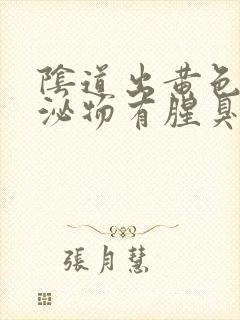 陰道出黄色
泌物有腥臭
張月慧